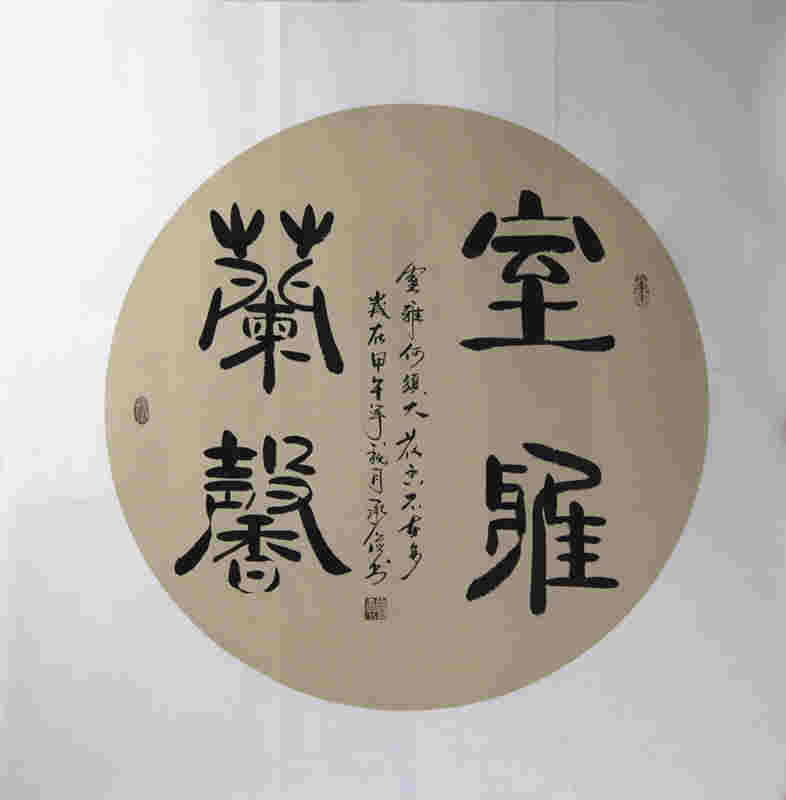 室雅
蘭馨
室雅何須大花香不在多
歲在甲午年秋月承信書